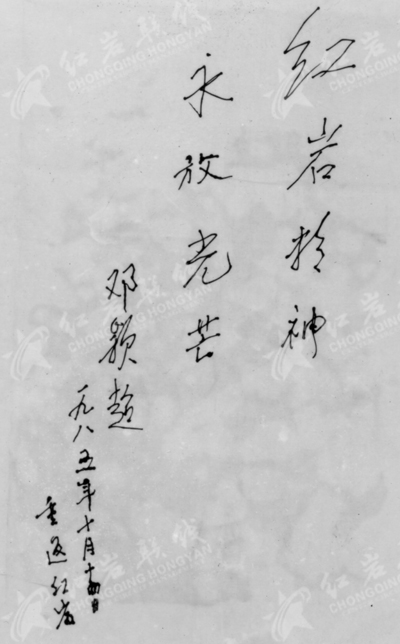 红岩精神
永放光芒
邓颖超
一九八五年十月十四日
重返红岩
红岩联线
CHONGQING HONGYAN